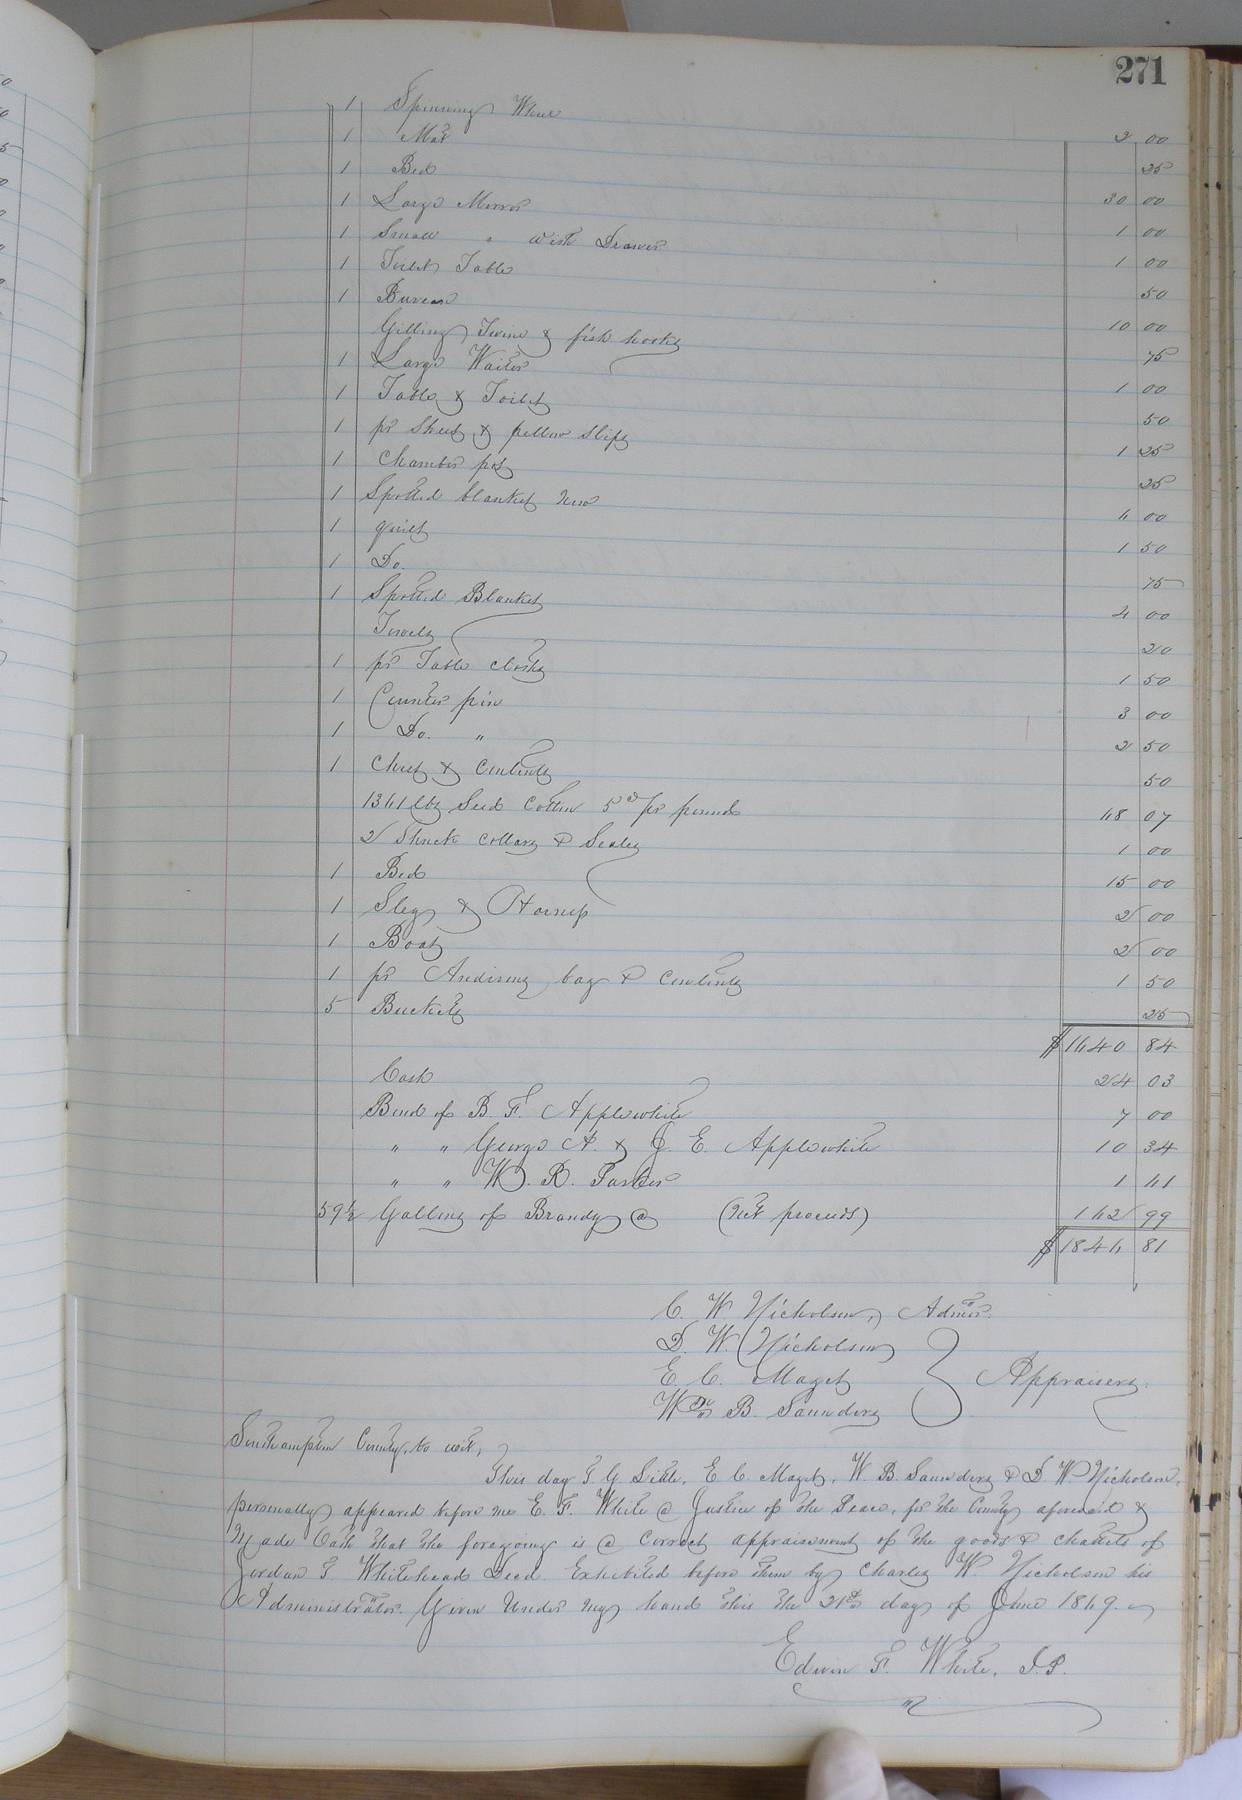 271
1 Spinning Wheel
1 Mat 2 00
1 Bed 25
1 Large Mirror 30 00
1 Small " with Drawer 1 00
1 Toilet Table 1 00
1 Bureau 50
Gilling Twine & fish hooks 10 00
1 Large Waiter 75
1 Table & Toilet 1 00
1 pr Sheets & pillow slips 50
1 Chamber pot 1 25
1 Spotted blanket New 25
1 quilt 4 00
1 Do. 1 50
1 Spotted Blanket 75
Towels 4 00
1 pr Table cloths 20
1 Counter pin 1 50
1 Do. " 3 00
1 Chest & Contents 2 50
50
1361 lbs Seed Cotton 5 cs pr pound 48 07
2 Shuck Collars & Scales 1 00
1 Bed 15 00
1 Sleg & Harness 2 00
1 Boat 2 00
1 pr Andirons bag & Contents 1 50
5 Buckets 25
$1640 84
Cash 24 03
Bond of B. F. Applewhite 7 00
" " George A. & J. E. Applewhite 10 34
" " W. R. Parker 1 61
59½ Gallons of Brandy @ (Net proceeds) 162 99
$1846 81
C. W Nicholson, Admor.
D. W. Nicholson
E. C. Maget } Appraisers.
Wm B. Saunders
Southampton County, to wit,
This day E. C. Maget, W. B Saunders & D W. Nicholson,
personally appeared before me E. F. White a Justice of the Peace, for the County aforesaid &
Made Oath that the foregoing is a Correct appraisement of the goods & chattels of
Jordan T Whitehead Decd. Exhibited before them by Charles W. Nicholson his
Administrator. Given Under my hand this the 21st day of June 1869.
Edwin F. White, J.P.